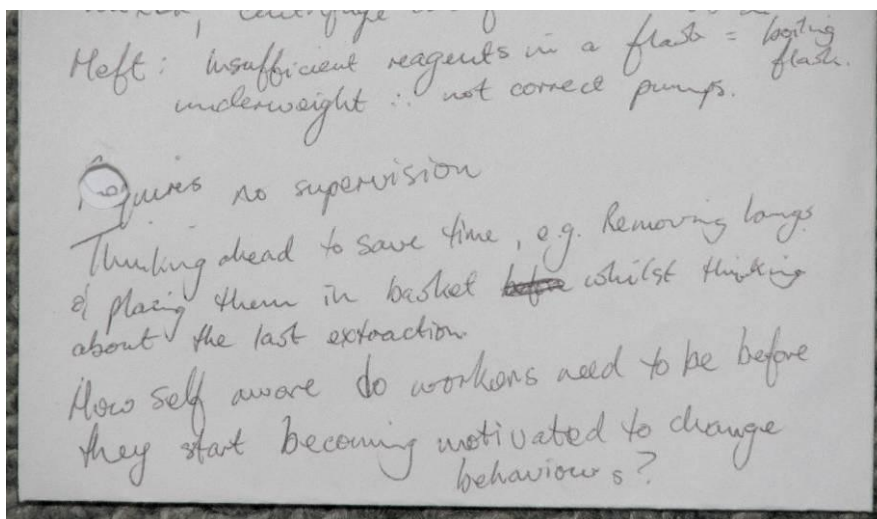 , centrifuge
Theft: Insufficient reagents in a flask = boiling
flask.
underweight ∴ not correct pumps.
Requires no supervision
Thinking ahead to save time, e.g. Removing
& placing them in basket whilst thinking
about the last extraction
How self aware do workers need to be before
they start becoming motivated to change
behaviours?